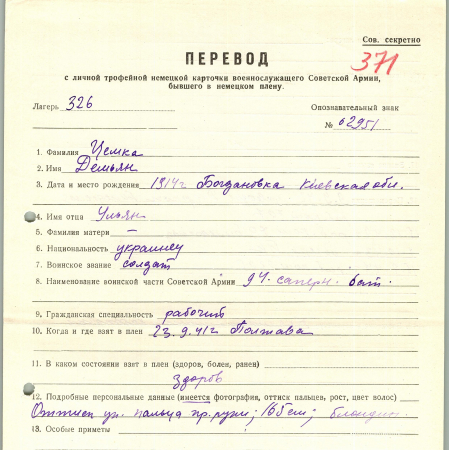 Сов. секретно
371
ПЕРЕВОД
с личной трофейной немецкой карточки военнослужащего Советской Армии,
бывшего в немецком плену.
Лагерь 326
Опознавательный знак
№ 62951
1. Фамилия Цемка
2. Имя Демьян
3. Дата и место рождения 1914г Богдановка Киевская обл.
4. Имя отца Ульян
5. Фамилия матери —
6. Национальность украинец
7. Воинское звание солдат
8. Наименование воинской части Советской Армии 94. саперн. бат.
9. Гражданская специальность рабочий
10. Когда и где взят в плен 23.9.41г Полтава
11. В каком состоянии взят в плен (здоров, болен, ранен)
здоров
12. Подробные персональные данные (имеется фотография, оттиск пальцев, рост, цвет волос)
Оттиск ук. пальца пр. руки; 165см; блондин.
13. Особые приметы